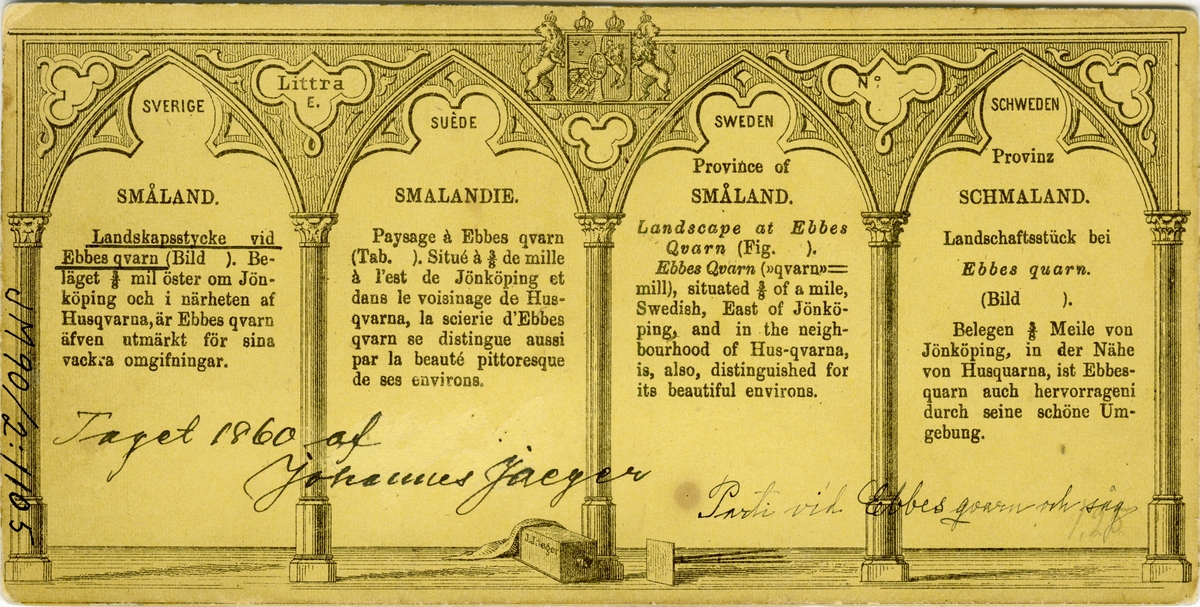 Littra
E.
Nº
SVERIGE
SMÅLAND.
Landskapsstycke vid
Ebbes qvarn (Bild ). Be-
läget ⅜ mil öster om Jön-
köping och i närheten af
Husqvarna, är Ebbes qvarn
äfven utmärkt för sina
vackra omgifningar.
SUÈDE
SMALANDIE.
Paysage à Ebbes qvarn
(Tab. ). Situé à ⅜ de mille
à l'est de Jönköping et
dans le voisinage de Hus-
qvarna, la scierie d'Ebbes
qvarn se distingue aussi
par la beauté pittoresque
de ses environs.
SWEDEN
Province of
SMÅLAND.
Landscape at Ebbes
Qvarn (Fig. ).
Ebbes Qvarn (»qvarn»=
mill), situated ⅜ of a mile,
Swedish, East of Jönkö-
ping, and in the neigh-
bourhood of Hus-qvarna,
is, also, distinguished for
its beautiful environs.
SCHWEDEN
Provinz
SCHMALAND.
Landschaftsstück bei
Ebbes quarn.
(Bild ).
Belegen ⅜ Meile von
Jönköping, in der Nähe
von Husquarna, ist Ebbes-
quarn auch hervorrageni
durch seine schöne Um-
gebung.
Taget 1860 af
Johannes Jaeger
Parti vid Ebbes qvarn och såg
J. Jaeger
JM90/2:1165